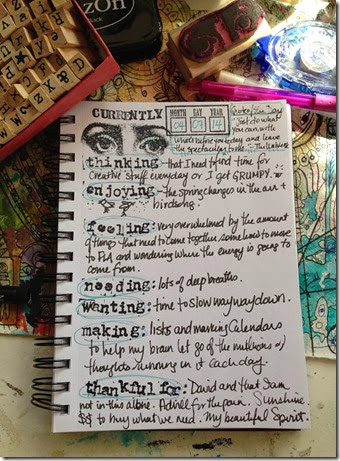 ZOn
BLACK
CURRENTLY
MONTH DAY YEAR
04 09 14
Note of the Day
Just do what
you can with
what's before you today and leave
the spectacular to me. - The Universe
thinking - that I need to find time for
Creative Stuff everyday or I get GRUMPY.
enjoying - the Spring changes in the air +
birdsong.
feeling: very overwhelmed by the amount
of things that need to come together somehow to move
to and wondering where the energy is going to
come from.
needing: lots of deep breaths.
Wanting: time to slow way way down.
making: lists and marking Calendars
to help my brain let go of the millions of
thoughts running in it each day.
thankful for: David and that I am
not in this alone. Advil for the pain. Sunshine
$$ to buy what we need. My beautiful Spirit.